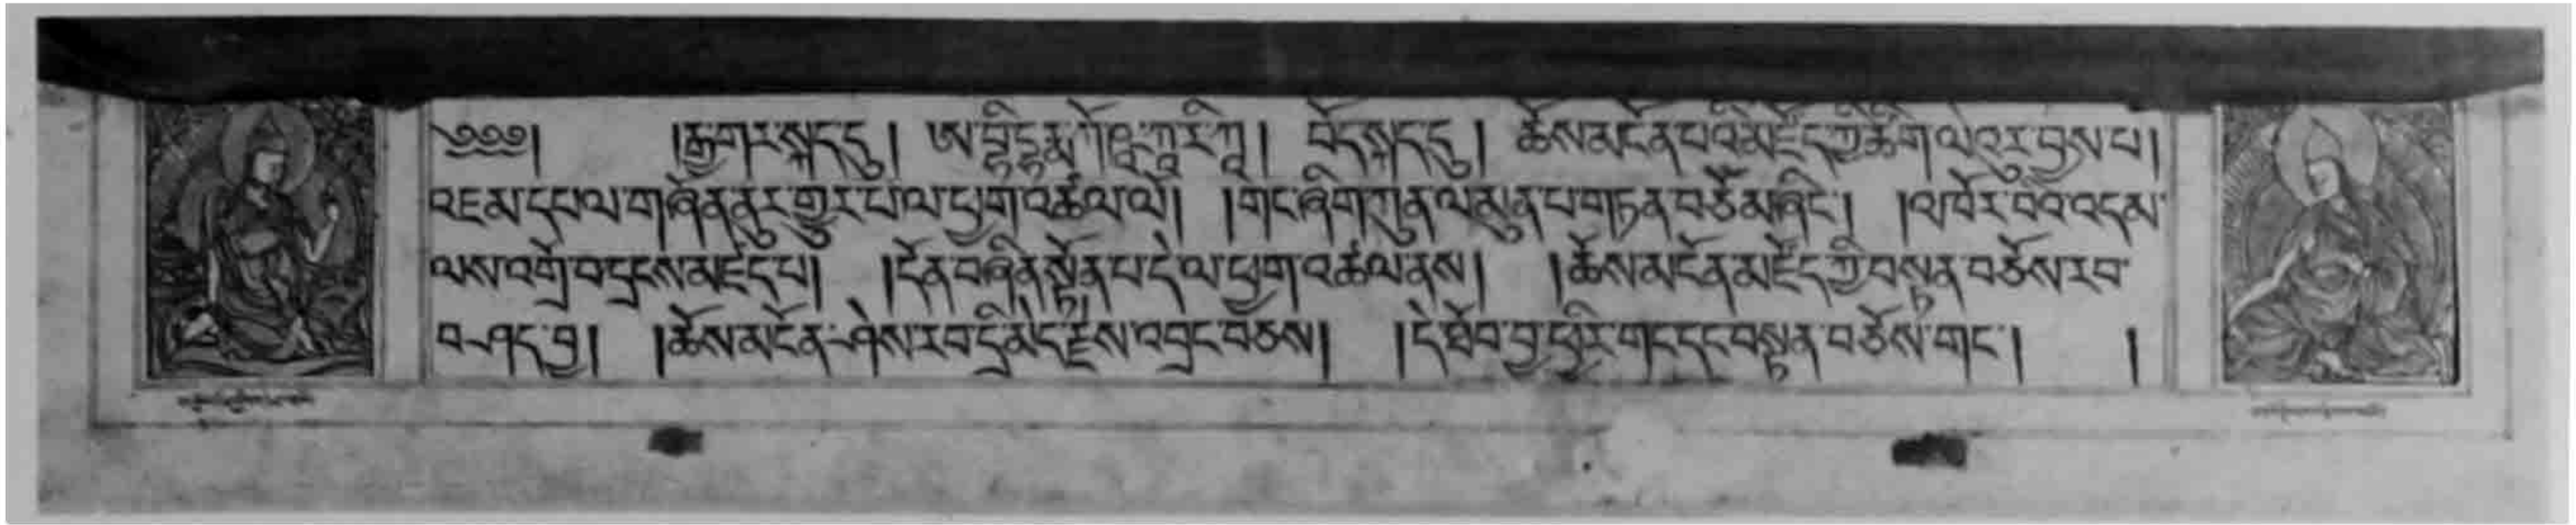 ༄༅༅། །རྒྱ་གར་སྐད་དུ། ཨ་བྷི་དྷརྨ་ཀོ་ཥ་ཀཱ་རི་ཀཱ། བོད་སྐད་དུ། ཆོས་མངོན་པའི་མཛོད་ཀྱི་ཚིག་ལེའུར་བྱས་པ།
འཇམ་དཔལ་གཞོན་ནུར་གྱུར་པ་ལ་ཕྱག་འཚལ་ལོ། །གང་ཞིག་ཀུན་ལ་མུན་པ་གཏན་བཅོམ་ཞིང་། །འཁོར་བའི་འདམ་
ལས་འགྲོ་བ་དྲངས་མཛད་པ། །དོན་བཞིན་སྟོན་པ་དེ་ལ་ཕྱག་འཚལ་ནས། །ཆོས་མངོན་མཛོད་ཀྱི་བསྟན་བཅོས་རབ་
བཤད་བྱ། །ཆོས་མངོན་ཤེས་རབ་དྲི་མེད་རྗེས་འབྲང་བཅས། །དེ་ཐོབ་བྱ་ཕྱིར་གང་དང་བསྟན་བཅོས་གང་། །